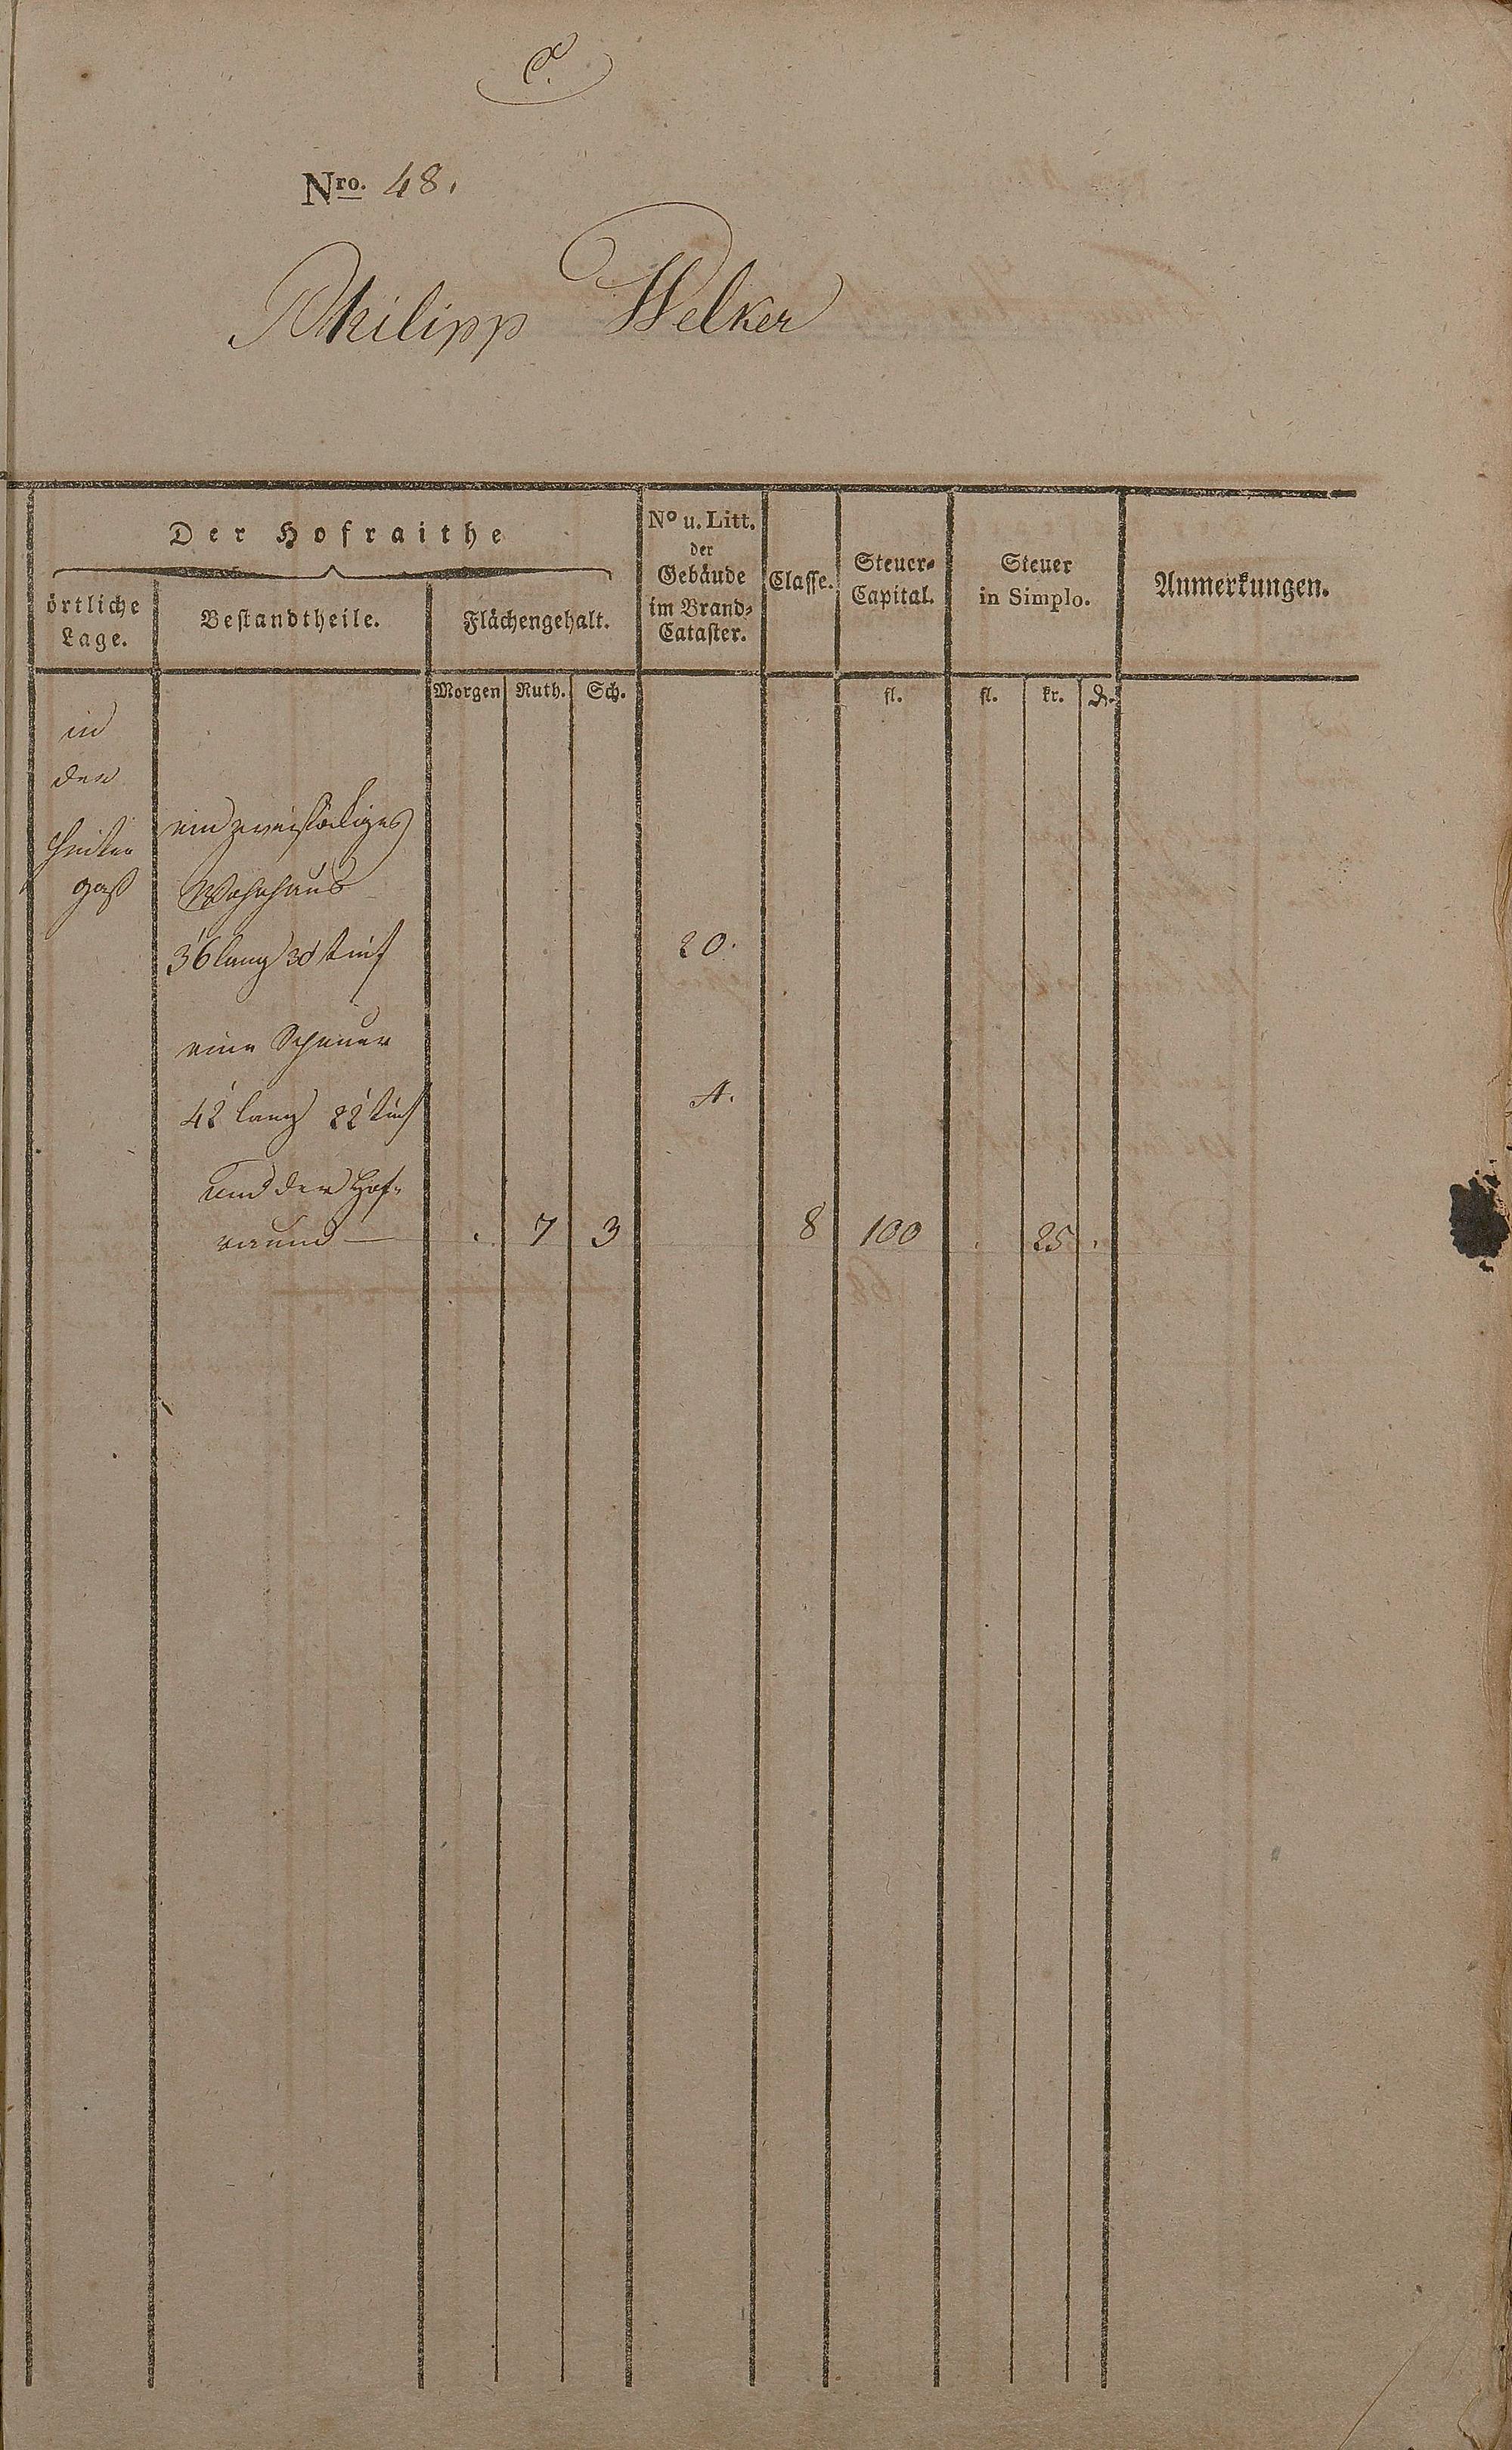 Nro. 48.
Philipp Welker
Der Hofraithe
örtliche Lage.
Bestandtheile.
Flächengehalt.
No u. Litt. der Gebäude im Brand-Cataster.
Classe.
Steuer-Capital.
Steuer in Simplo.
Anmerkungen.
Morgen Ruth. Sch. fl. fl. kr.
in
der
gaß
ein zweistöckiges
Wohnhaus
36' lang 30' tief 20.
eine Scheuer
42' lang 22' tief A.
und der Hof-
raum — . 7 3 8 100 . 25 .